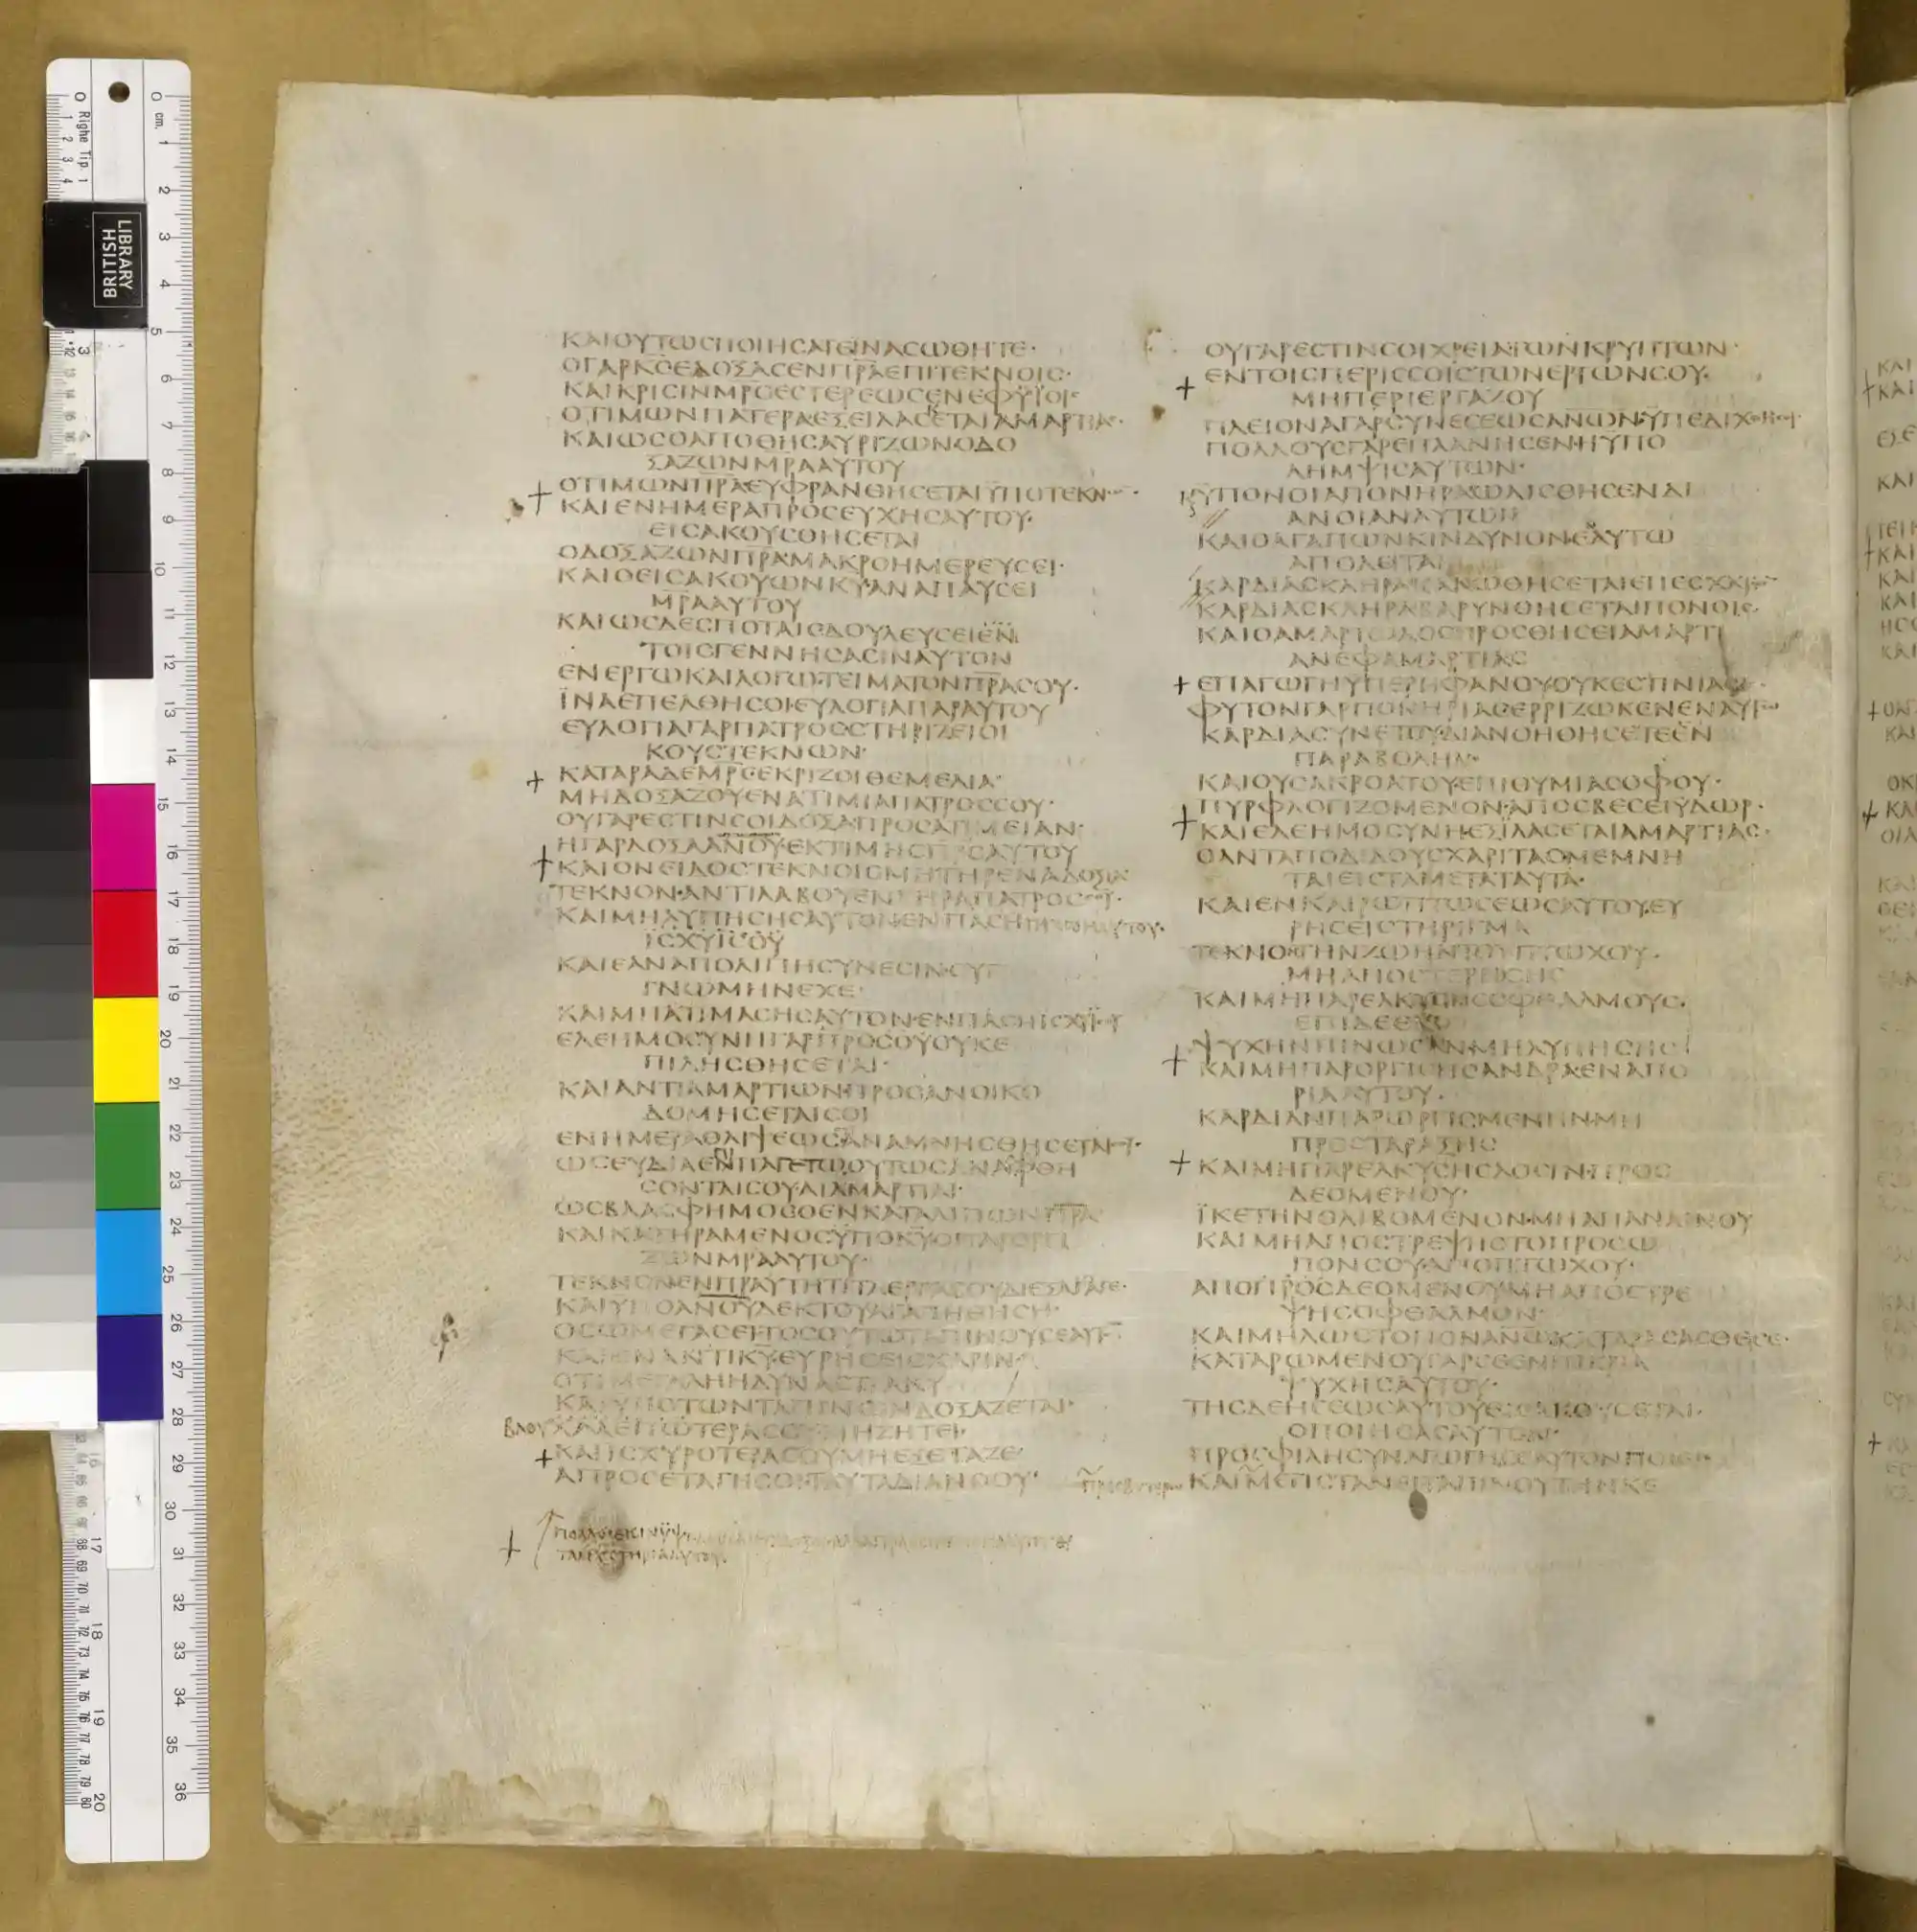 ΚΑΙΟΥΤΩCΠΟΙΗCΑΤΕΙΝΑCΩΘΗΤΕ·
ΟΓΑΡΚCΕΔΟΞΑCΕΝΠΡΑΕΠΙΤΕΚΝΟΙC·
ΚΑΙΚΡΙCΙΝΜΡCΕCΤΕΡΕΩCΕΝΕΦΥΪΟΙC
ΟΤΙΜΩΝΠΑΤΕΡΑΕΞΕΙΛΑCΕΤΑΙΑΜΑΡΤΙΑC·
ΚΑΙΩCΟΑΠΟΘΗCΑΥΡΙΖΩΝΟΔΟ
ΞΑΖΩΝΜΡΑΑΥΤΟΥ
ΟΤΙΜΩΝΠΡΑΕΥΦΡΑΝΘΗCΕΤΑΙΫΠΟΤΕΚΝ
ΚΑΙΕΝΗΜΕΡΑΠΡΟCΕΥΧΗCΑΥΤΟΥ·
ΕΙCΑΚΟΥCΘΗCΕΤΑΙ
ΟΔΟΞΑΖΩΝΠΡΑΜΑΚΡΟΗΜΕΡΕΥCΕΙ·
ΚΑΙΟΕΙCΑΚΟΥΩΝΚΥΑΝΑΠΑΥCΕΙ
ΜΡΑΑΥΤΟΥ
ΚΑΙΩCΔΕCΠΟΤΑΙCΔΟΥΛΕΥCΕΙΕΝ
ΤΟΙCΓΕΝΝΗCΑCΙΝΑΥΤΟΝ
ΕΝΕΡΓΩΚΑΙΛΟΓΩΤΕΙΜΑΤΟΝΠΡΑCΟΥ·
ΪΝΑΕΠΕΛΘΗCΟΙΕΥΛΟΓΙΑΠΑΡΑΥΤΟΥ
ΕΥΛΟΓΙΑΓΑΡΠΑΤΡΟCCΤΗΡΙΖΕΙΟΙ
ΚΟΥCΤΕΚΝΩΝ·
ΚΑΤΑΡΑΔΕΜΡCΕΚΡΙΖΟΙΘΕΜΕΛΙΑ·
ΜΗΔΟΞΑΖΟΥΕΝΑΤΙΜΙΑΠΑΤΡΟCCΟΥ·
ΟΥΓΑΡΕCΤΙΝCΟΙΔΟΞΑΠΡΟCΑΤΙΜΕΙΑΝ·
ΗΓΑΡΔΟΞΑΑΝΟΥ·ΕΚΤΙΜΗCΠΡCΑΥΤΟΥ
ΚΑΙΟΝΕΙΔΟCΤΕΚΝΟΙCΜΗΤΗΡΕΝΑΔΟΞΙΑ
ΤΕΚΝΟΝ·ΑΝΤΙΛΑΒΟΥΕΝΓΗΡΑΠΑΤΡΟC
ΚΑΙΜΗΛΥΠΗCΗCΑΥΤΟΝΕΝΠΑCΗΤΗΖΩΗΑΥΤΟΥ·
ΪCΧΥΪCΟΥ
ΚΑΙΕΑΝΑΠΟΛΙΠΗCΥΝΕCΙΝ·CΥΓ
ΓΝΩΜΗΝΕΧΕ·
ΚΑΙΜΗΑΤΙΜΑCΗCΑΥΤΟΝ·ΕΝΠΑCΗΙCΧΥΪ
ΕΛΕΗΜΟCΥΝΗΓΑΡΠΡΟCΟΥΟΥΚΕ
ΠΙΛΗCΘΗCΕΤΑΙ·
ΚΑΙΑΝΤΙΑΜΑΡΤΙΩΝΠΡΟCΑΝΟΙΚΟ
ΔΟΜΗCΕΤΑΙCΟΙ
ΕΝΗΜΕΡΑΘΛΙΨΕΩCΑΝΑΜΝΗCΘΗCΕΤΑΙ
ΩCΕΥΔΙΑΕΝΠΑΓΕΤΩΟΥΤΩCΑΝΑ
CΟΝΤΑΙCΟΥΑΙΑΜΑΡΤΙΑΙ·
ΩCΒΛΑCΦΗΜΟCΟΕΝΚΑΤΑΛΙΠΩΝΠΡΑ
ΚΑΙΚΑΤΗΡΑΜΕΝΟCΫΠΟΚΥΟΠΑΡΟΡΓΙ
ΖΩΝΜΡΑΑΥΤΟΥ·
ΤΕΚΝΟΝΕΝΠΡΑΥΤΗΤΙΤΑΕΡΓΑCΟΥΔΙΕΞΑΓΑΓΕ·
ΚΑΙΥΠΟΑΝΟΥΔΕΚΤΟΥΑΓΑΠΗΘΗCΗ·
ΟCΩΜΕΓΑCΕΙΤΟCΟΥΤΩΤΑΠΙΝΟΥCΕΑΥΤ
ΚΑΙΕΝΑΝΤΙΚΥ·ΕΥΡΗCΕΙCΧΑΡΙΝ·
ΟΤΙΜΕΓΑΛΗΗΔΥΝΑCΤΙΑΚΥ
ΚΑΙΥΠΟΤΩΝΤΑΠΙΝΩΝΔΟΞΑΖΕΤΑΙ·
ΧΑΛΕΠΩΤΕΡΑCΟΥΜΗΖΗΤΕΙ·
ΚΑΙΙCΧΥΡΟΤΕΡΑCΟΥΜΗΕΞΕΤΑΖΕ·
ΑΠΡΟCΕΤΑΓΗCΟΙΤΑΥΤΑΔΙΑΝΟΟΥ·
ΟΥΓΑΡΕCΤΙΝCΟΙΧΡΕΙΑΤΩΝΚΡΥΠΤΩΝ·
ΕΝΤΟΙCΠΕΡΙCCΟΙCΤΩΝΕΡΓΩΝCΟΥ·
ΜΗΠΕΡΙΕΡΓΑΖΟΥ
ΠΛΕΙΟΝΑΓΑΡCΥΝΕCΕΩCΑΝΩΝΫΠΕΔΙΧΘΗCΟΙ·
ΠΟΛΛΟΥCΓΑΡΕΠΛΑΝΗCΕΝΗΥΠΟ
ΛΗΜΨΙCΑΥΤΩΝ·
ΫΠΟΝΟΙΑΠΟΝΗΡΑΩΛΙCΘΗCΕΝΔΙ
ΑΝΟΙΑΝΑΥΤΩΝ
ΚΑΙΟΑΓΑΠΩΝΚΙΝΔΥΝΟΝΕΑΥΤΩ
ΑΠΟΛΕΙΤΑΙ
ΚΑΡΔΙΑCΚΛΗΡΑΚΑΚΩΘΗCΕΤΑΙΕΠΕCΧΑΤ
ΚΑΡΔΙΑCΚΛΗΡΑΒΑΡΥΝΘΗCΕΤΑΙΠΟΝΟΙC·
ΚΑΙΟΑΜΑΡΤΩΛΟCΠΡΟCΘΗCΕΙΑΜΑΡΤΙ
ΑΝΕΦΑΜΑΡΤΙΑC
ΕΠΑΓΩΓΗΥΠΕΡΗΦΑΝΟΥΟΥΚΕCΤΙΝΙΑCΙC·
ΦΥΤΟΝΓΑΡΠΟΝΗΡΙΑCΕΡΡΙΖΩΚΕΝΕΝΑΥΤ
ΚΑΡΔΙΑCΥΝΕΤΟΥΔΙΑΝΟΗΘΗCΕΤΕΕΝ
ΠΑΡΑΒΟΛΗΝ·
ΚΑΙΟΥCΑΚΡΟΑΤΟΥΕΠΙΘΥΜΙΑCΟΦΟΥ·
ΠΥΡΦΛΟΓΙΖΟΜΕΝΟΝ·ΑΠΟCΒΕCΕΙΫΔΩΡ·
ΚΑΙΕΛΕΗΜΟCΥΝΗΕΞΙΛΑCΕΤΑΙΑΜΑΡΤΙΑC·
ΟΑΝΤΑΠΟΔΙΔΟΥCΧΑΡΙΤΑCΜΕΜΝΗ
ΤΑΙΕΙCΤΑΜΕΤΑΤΑΥΤΑ·
ΚΑΙΕΝΚΑΙΡΩΠΤΩCΕΩCΑΥΤΟΥ·ΕΥ
ΡΗCΕΙCΤΗΡΙΓΜΑ
ΤΕΚΝΟΝΤΗΝΖΩΗΝΤΟΥΠΤΩΧΟΥ·
ΜΗΑΠΟCΤΕΡΗCΗC
ΚΑΙΜΗΠΑΡΕΛΚΥCΗCΟΦΘΑΛΜΟΥC·
ΕΠΙΔΕΕΙC
ΨΥΧΗΝΠΙΝΩCΑΝ·ΜΗΛΥΠΗCΗC
ΚΑΙΜΗΠΑΡΟΡΓΙCΗCΑΝΔΡΑΕΝΑΠΟ
ΡΙΑΑΥΤΟΥ·
ΚΑΡΔΙΑΝΠΑΡΩΡΓΙCΜΕΝΗΝΜΗ
ΠΡΟCΤΑΡΑΞΗC
ΚΑΙΜΗΠΑΡΕΛΚΥCΗCΔΟCΙΝΠΡΟC
ΔΕΟΜΕΝΟΥ·
ΪΚΕΤΗΝΘΛΙΒΟΜΕΝΟΝ·ΜΗΑΠΑΝΑΙΝΟΥ
ΚΑΙΜΗΑΠΟCΤΡΕΨΗCΤΟΠΡΟCΩ
ΠΟΝCΟΥΑΠΟΠΤΩΧΟΥ·
ΑΠΟΠΡΟCΔΕΟΜΕΝΟΥΜΗΑΠΟCΤΡΕ
ΨΗCΟΦΘΑΛΜΟΝ·
ΚΑΙΜΗΔΩCΤΟΠΟΝΑΝΩΚΑΤΑΡΑCΑCΘΕCΕ·
ΚΑΤΑΡΩΜΕΝΟΥΓΑΡCΕΕΝΠΙΚΡΙΑ
ΨΥΧΗCΑΥΤΟΥ·
ΤΗCΔΕΗCΕΩCΑΥΤΟΥΕΙCΑΚΟΥCΕΤΑΙ·
ΟΠΟΙΗCΑCΑΥΤΟΝ·
ΠΡΟCΦΙΛΗCΥΝΑΓΩΓΗCΕΑΥΤΟΝΠΟΙΕΙ·
ΚΑΙΜΕΓΙCΤΑΝΕΙΤΑΠΙΝΟΥΤΗΝΚΕ
BRITISH
LIBRARY